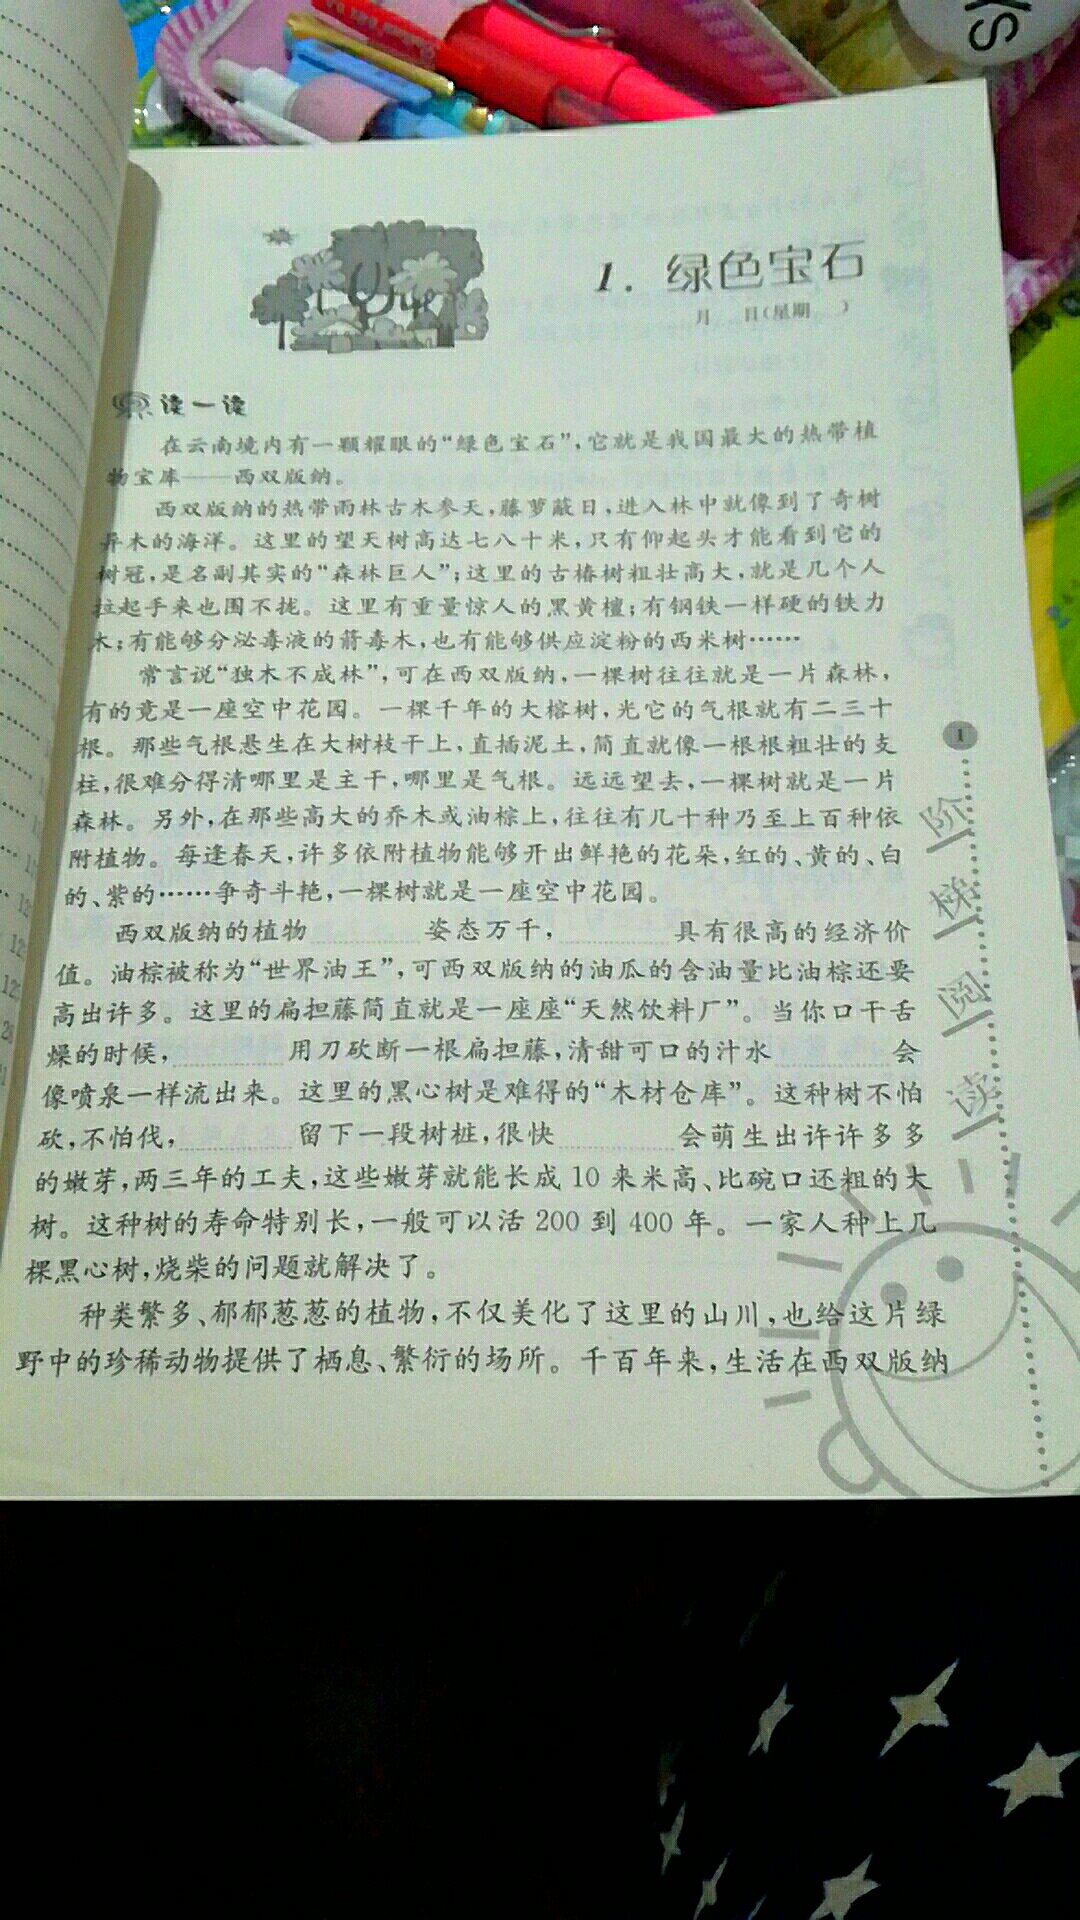 1. 绿色宝石
月 日(星期 )
读一读
在云南境内有一颗耀眼的“绿色宝石”,它就是我国最大的热带植
物宝库——西双版纳。
西双版纳的热带雨林古木参天,藤萝蔽日,进入林中就像到了奇树
异木的海洋。这里的望天树高达七八十米,只有仰起头才能看到它的
树冠,是名副其实的“森林巨人”;这里的古椿树粗壮高大,就是几个人
拉起手来也围不拢。这里有重量惊人的黑黄檀;有钢铁一样硬的铁力
木;有能够分泌毒液的箭毒木,也有能够供应淀粉的西米树……
常言说“独木不成林”,可在西双版纳,一棵树往往就是一片森林,
有的竟是一座空中花园。一棵千年的大榕树,光它的气根就有二三十
根。那些气根悬生在大树枝干上,直插泥土,简直就像一根根粗壮的支
柱,很难分得清哪里是主干,哪里是气根。远远望去,一棵树就是一片
森林。另外,在那些高大的乔木或油棕上,往往有几十种乃至上百种依
附植物。每逢春天,许多依附植物能够开出鲜艳的花朵,红的、黄的、白
的、紫的……争奇斗艳,一棵树就是一座空中花园。
西双版纳的植物 姿态万千, 具有很高的经济价
值。油棕被称为“世界油王”,可西双版纳的油瓜的含油量比油棕还要
高出许多。这里的扁担藤简直就是一座座“天然饮料厂”。当你口干舌
燥的时候, 用刀砍断一根扁担藤,清甜可口的汁水 会
像喷泉一样流出来。这里的黑心树是难得的“木材仓库”。这种树不怕
砍,不怕伐, 留下一段树桩,很快 会萌生出许许多多
的嫩芽,两三年的工夫,这些嫩芽就能长成 10 来米高、比碗口还粗的大
树。这种树的寿命特别长,一般可以活 200 到 400 年。一家人种上几
棵黑心树,烧柴的问题就解决了。
种类繁多、郁郁葱葱的植物,不仅美化了这里的山川,也给这片绿
野中的珍稀动物提供了栖息、繁衍的场所。千百年来,生活在西双版纳
1
阶梯阅读